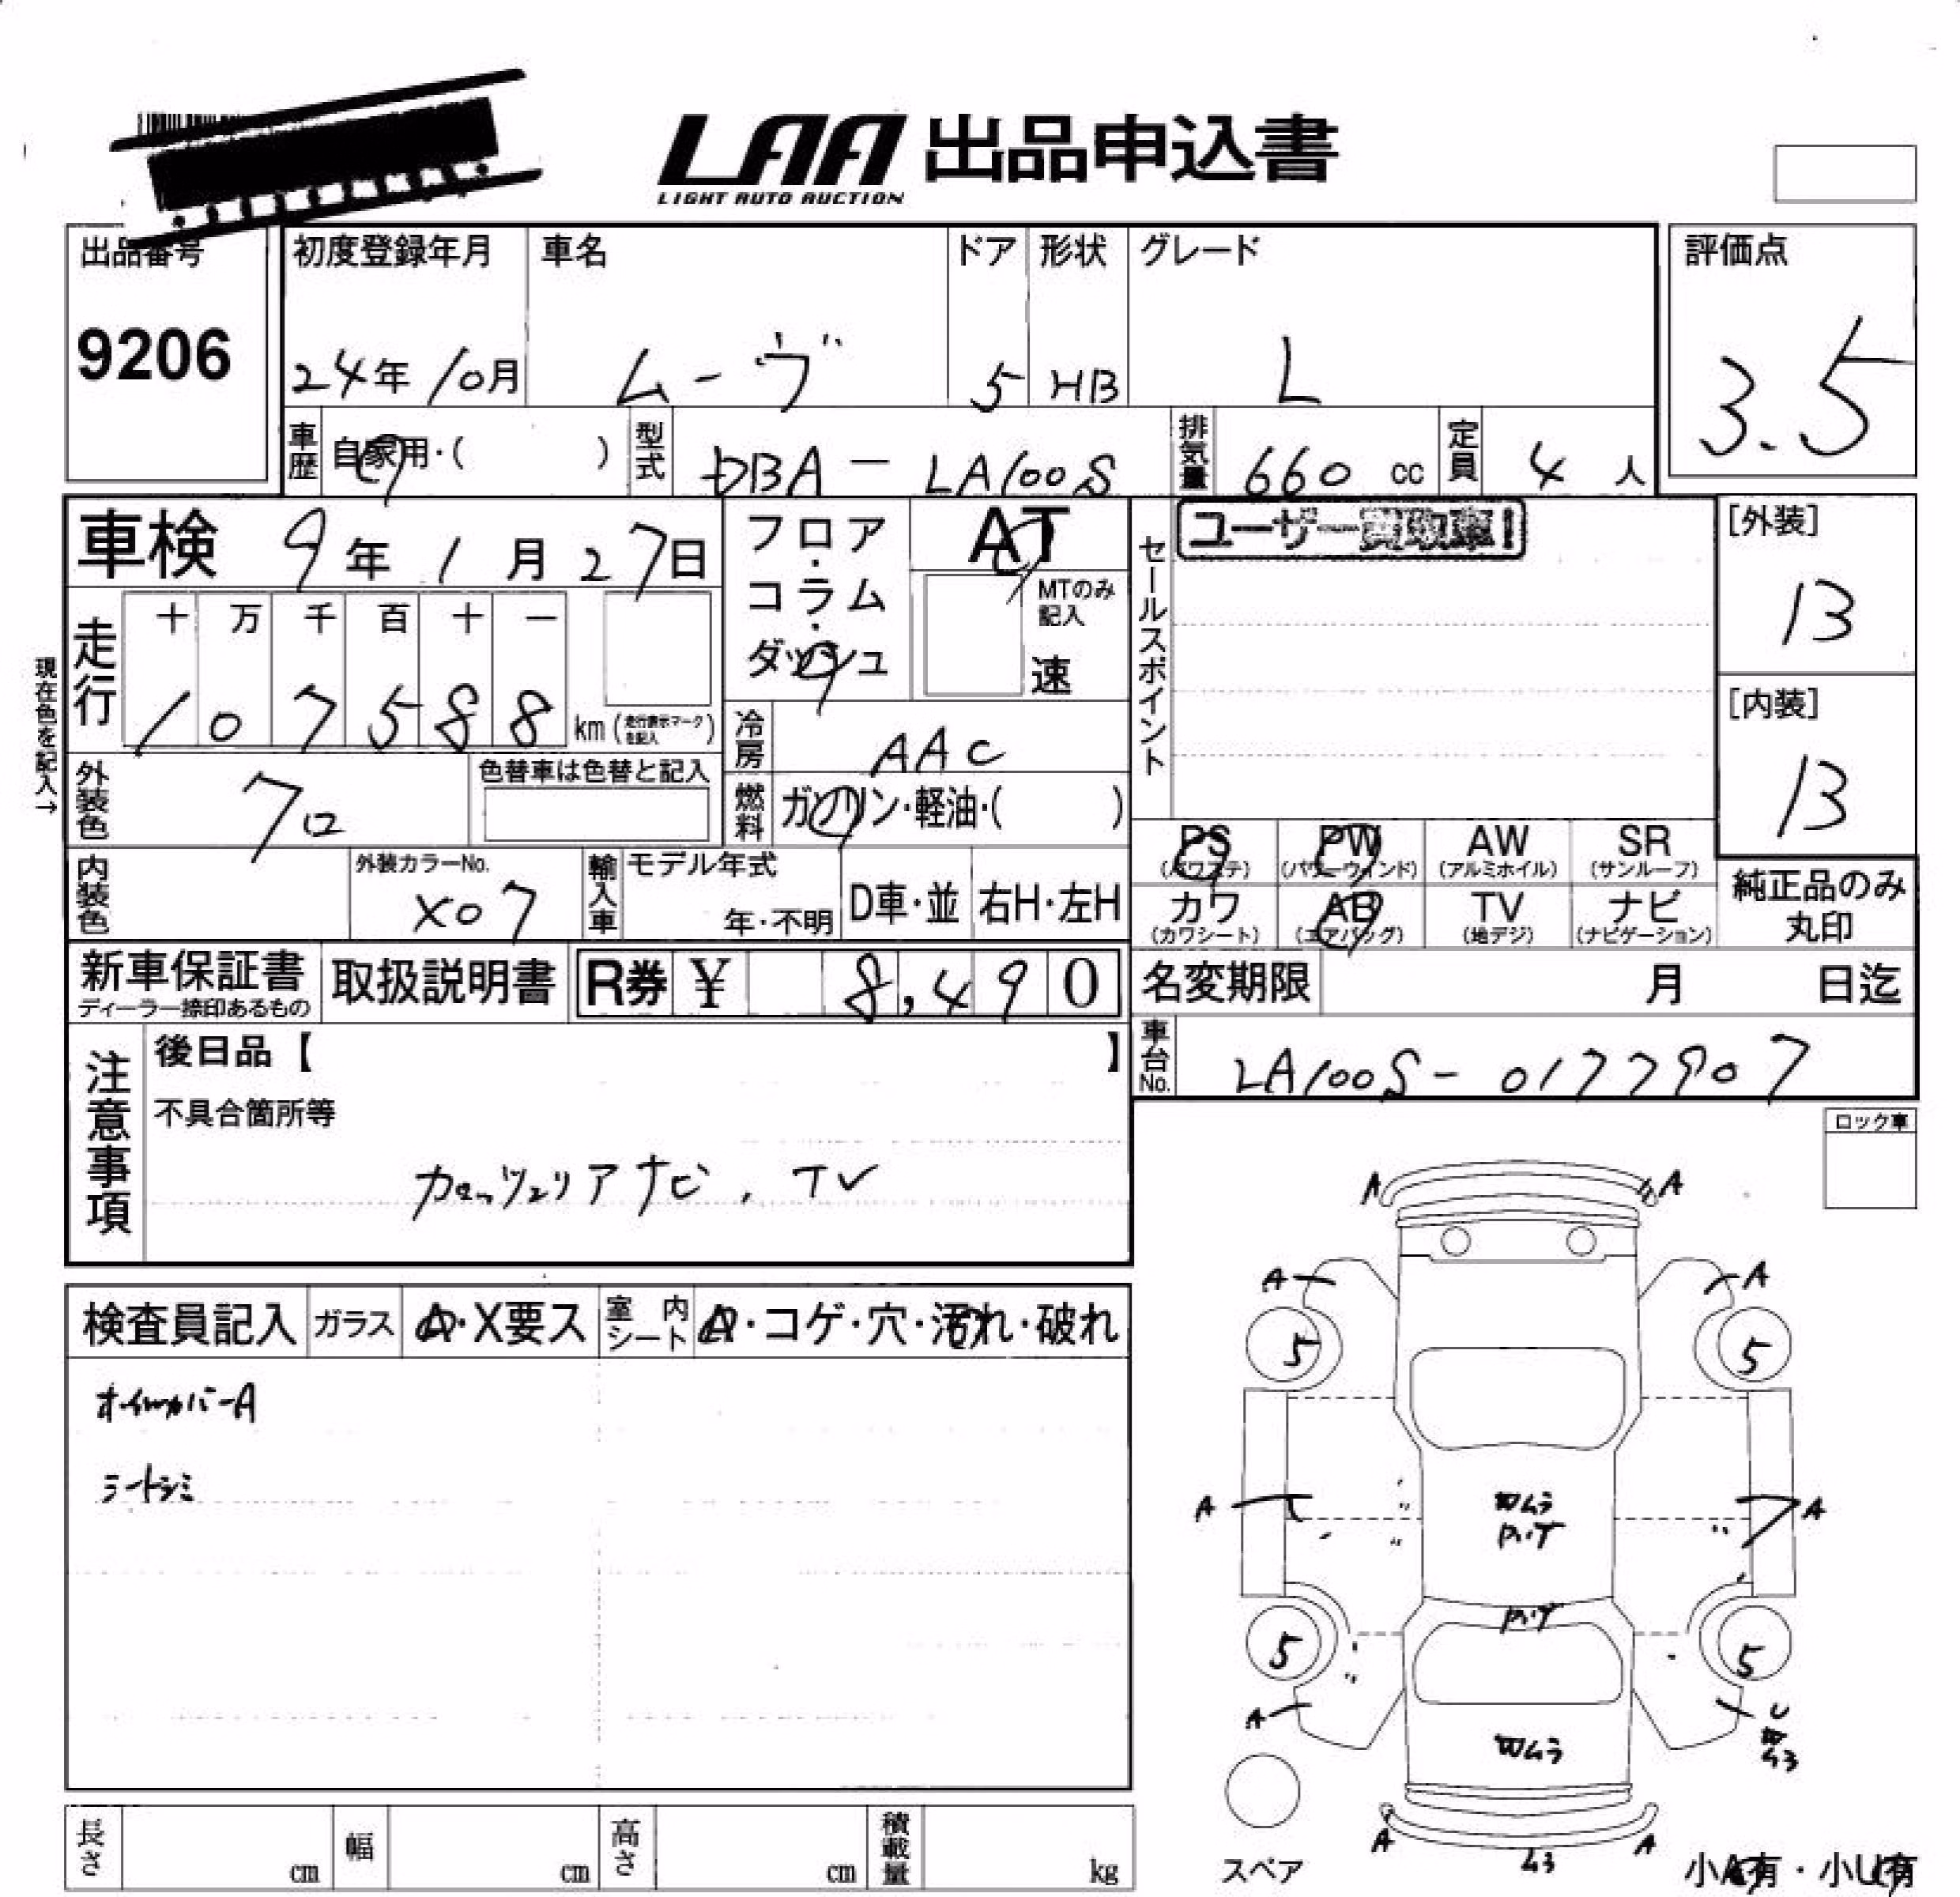 LAA 出品申込書
LIGHT AUTO AUCTION
出品番号
9206
初度登録年月
24年10月
車名
ムーヴ
ドア
5
形状
HB
グレード
L
評価点
3.5
車歴
自家用・( )
型式
DBA-LA100S
排気量
660 cc
定員
4 人
車検 9年1月27日
フロア・コラム・ダッシュ
AT
MTのみ記入
速
セールスポイント
ユーザー買取車!
[外装]
13
[内装]
13
現在色を記入→
走行
十 万 千 百 十 一
1 0 7 5 8 8 km (走行表示マークを記入)
冷房
AAC
外装色
クロ
色替車は色替と記入
燃料
ガソリン・軽油・( )
PS (パワステ)
PW (パワーウインド)
AW (アルミホイル)
SR (サンルーフ)
カワ (カワシート)
AB (エアバッグ)
TV (地デジ)
ナビ (ナビゲーション)
純正品のみ丸印
内装色
外装カラーNo.
X07
輸入車
モデル年式
年・不明
D車・並
右H・左H
新車保証書
ディーラー捺印あるもの
取扱説明書
R券 ¥ 8,490
名変期限 月 日迄
車台No.
LA100S-0177907
注意事項
後日品【 】
不具合箇所等
カロッツェリアナビ、TV
ロック車
検査員記入
ガラス
A・X要ス
室内シート
A・コゲ・穴・汚れ・破れ
オイルカバーA
シートシミ
A A
A A
5 5
A A
凹ムラ
5 5
A
凹ムラ
U
A A
スペア
小A有・小U有
長さ cm
幅 cm
高さ cm
積載量 kg